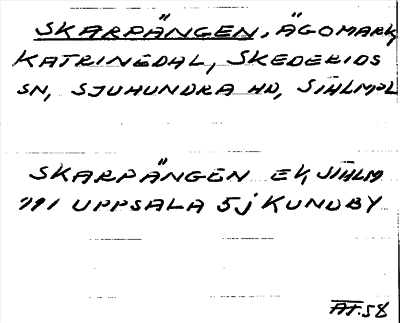 SKARPÄNGEN, ÄGOMARK,
KATRINEDAL, SKEDERIDS
SN, SJUHUNDRA HD, STHLMSL
SKARPÄNGEN EK, STHLM
791 UPPSALA 5j KUNDBY
AT.58